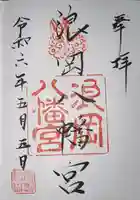 奉拝
浪岡八幡宮
浪岡
八幡宮
令和六年五月五日